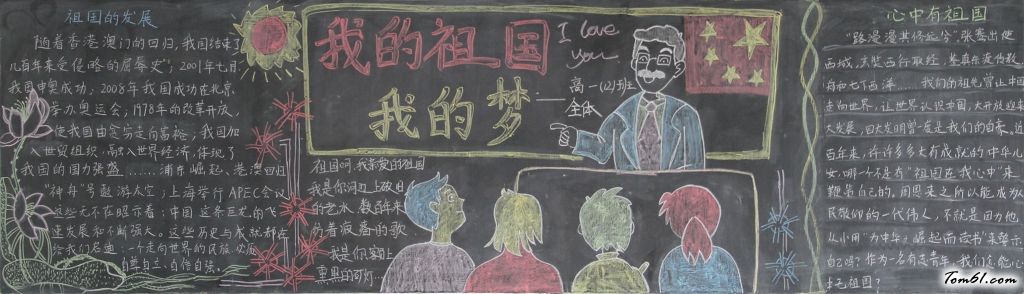 祖国的发展
随着香港澳门的回归,我国结束了
几百年来受侵略的屈辱史";2001年七月
我国申奥成功;2008年我国成功在北京
举办奥运会,1978年的改革开放,
使我国由贫穷走向富裕,我国加
入世贸组织,融入世界经济,体现了
我国的国力强盛……浦东崛起、港澳回归
"神舟"号遨游太空;上海举行APEC会议
这些无不在昭示着:中国这条巨龙的飞
速发展和不断强大。这些历史与成就都在
给我们启迪:一个走向世界的民族必须
自尊自立、自信自强。
我的祖国
我的梦
I love
you
——高一(2)班
全体
祖国呵,我亲爱的祖国
我是你河边上破旧
的老水
数百年来
纺着疲惫的歌
我是你额上
熏黑的矿灯…
心中有祖国
"路漫漫其修远兮"张骞出使
西域,玄奘西行取经,鉴真东渡传教,
郑和七下西洋……我们的祖先曾让中国
走向世界,让世界认识中国,大开放迎来
大发展,四大发明曾一度是我们的自豪,近
百年来,许许多多大有成就的中华儿
女,哪一个不是有"祖国在我心中"来
鞭策自己的,周恩来之所以能成为人
民敬仰的一代伟人,不就是因为他,
从小用"为中华之崛起而读书"来警示
自己吗?作为一名有志青年,我们怎能心
中无祖国?
Tom61.com